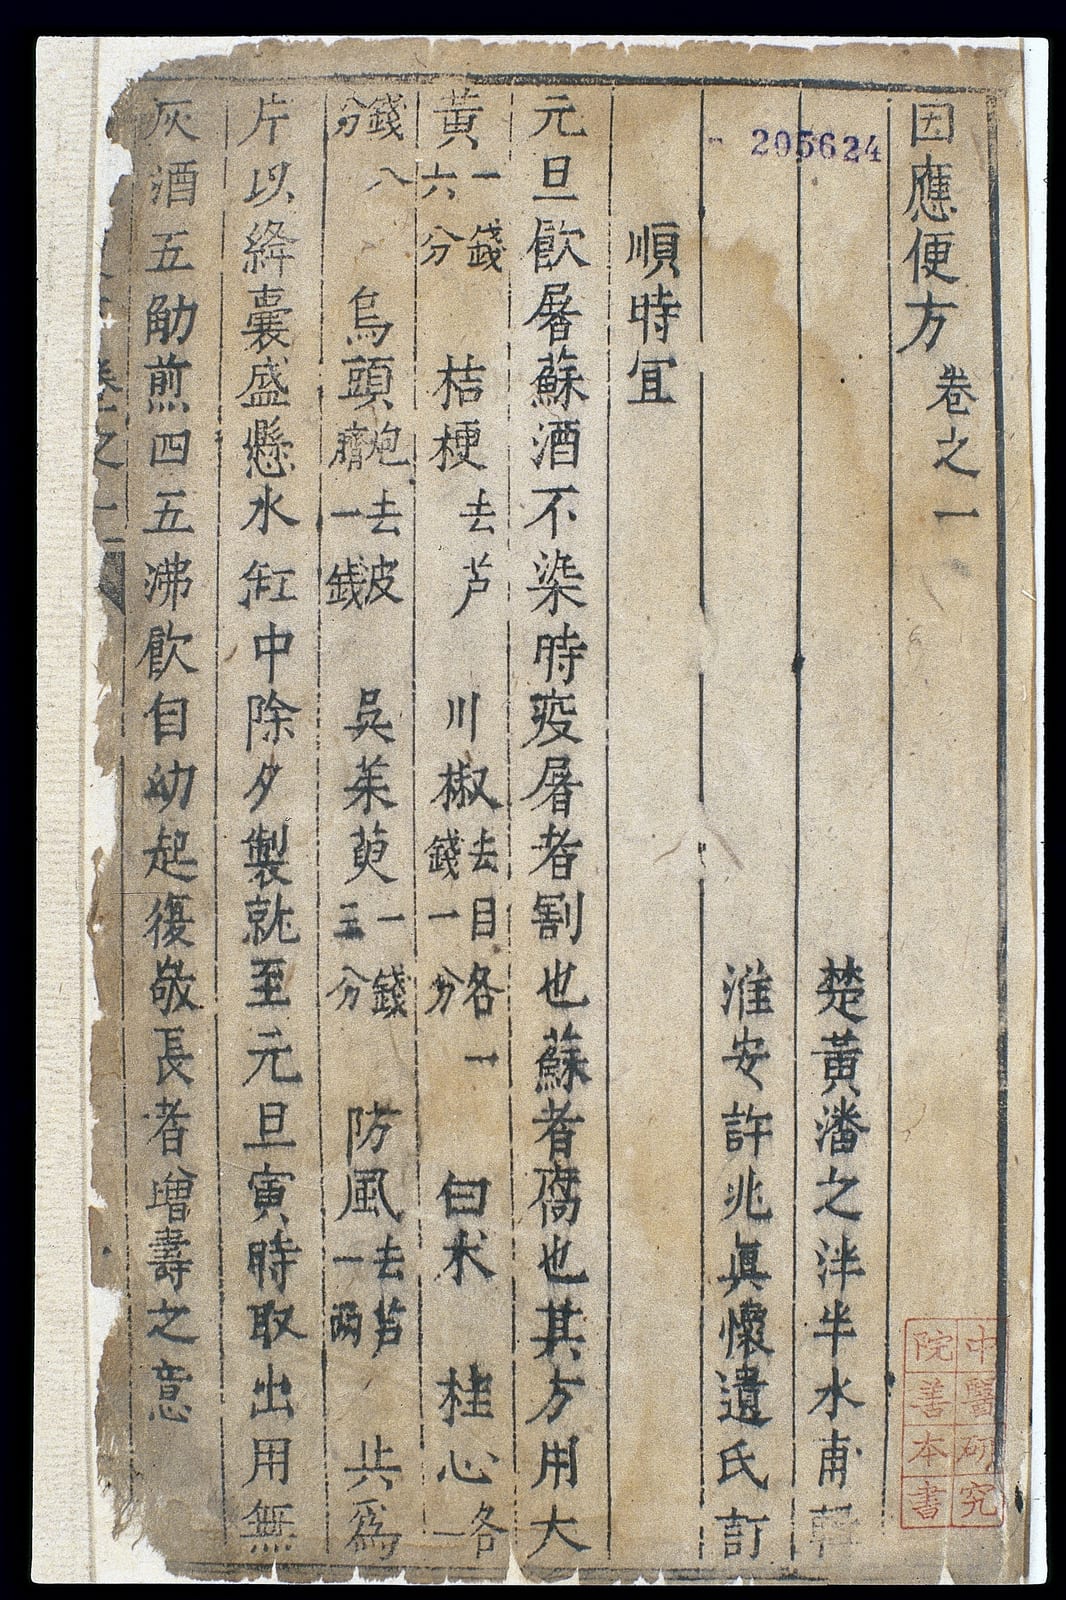 因應便方卷之一
楚黃潘之泮半水甫輯
淮安許兆眞懷遺氏訂
順時宜
元旦飮屠蘇酒不染時疫屠者割也蘇者腐也其方用大
黃一錢六分 桔梗去芦 川椒去目各一錢一分 白朮 桂心各一
錢八分 烏頭炮去皮臍一錢 吳茱萸一錢三分 防風去芦一兩 共爲
片以絳囊盛懸水缸中除夕製就至元旦寅時取出用無
灰酒五觔煎四五沸飮自幼起復敬長者增壽之意
卷之一
205624
中醫研究
院善本書